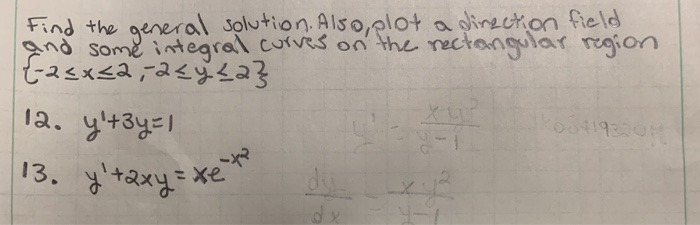 Find the general solution. Also, plot a direction field
and some integral curves on the rectangular region
{-2≤x≤2, -2≤y≤2}
12. y'+3y=1
y' = xy²/y-1
13. y'+2xy = xe^-x²
dy/dx = xy²/y-1